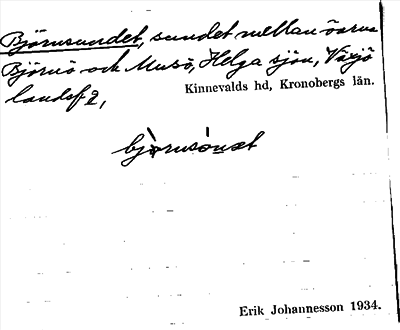 Björnsundet, sundet mellan öarna
Björnö och Musö, Helga sjön, Växjö
landsf 2,
Kinnevalds hd, Kronobergs län.
bjò̀rnsúnət
Erik Johannesson 1934.